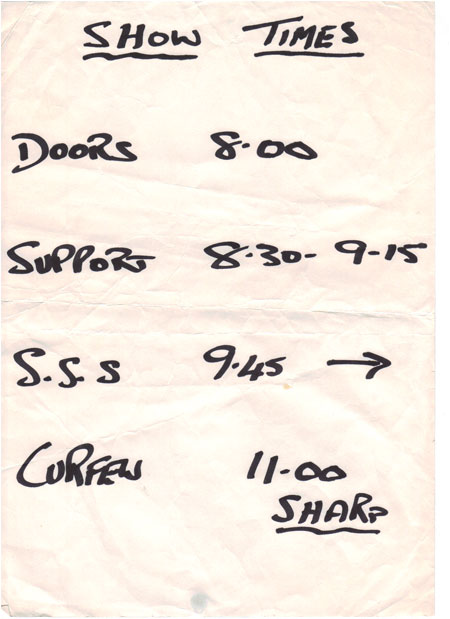 SHOW TIMES
DOORS 8.00
SUPPORT 8.30- 9-15
S.S.S 9.45 →
CURFEW 11-00
SHARP